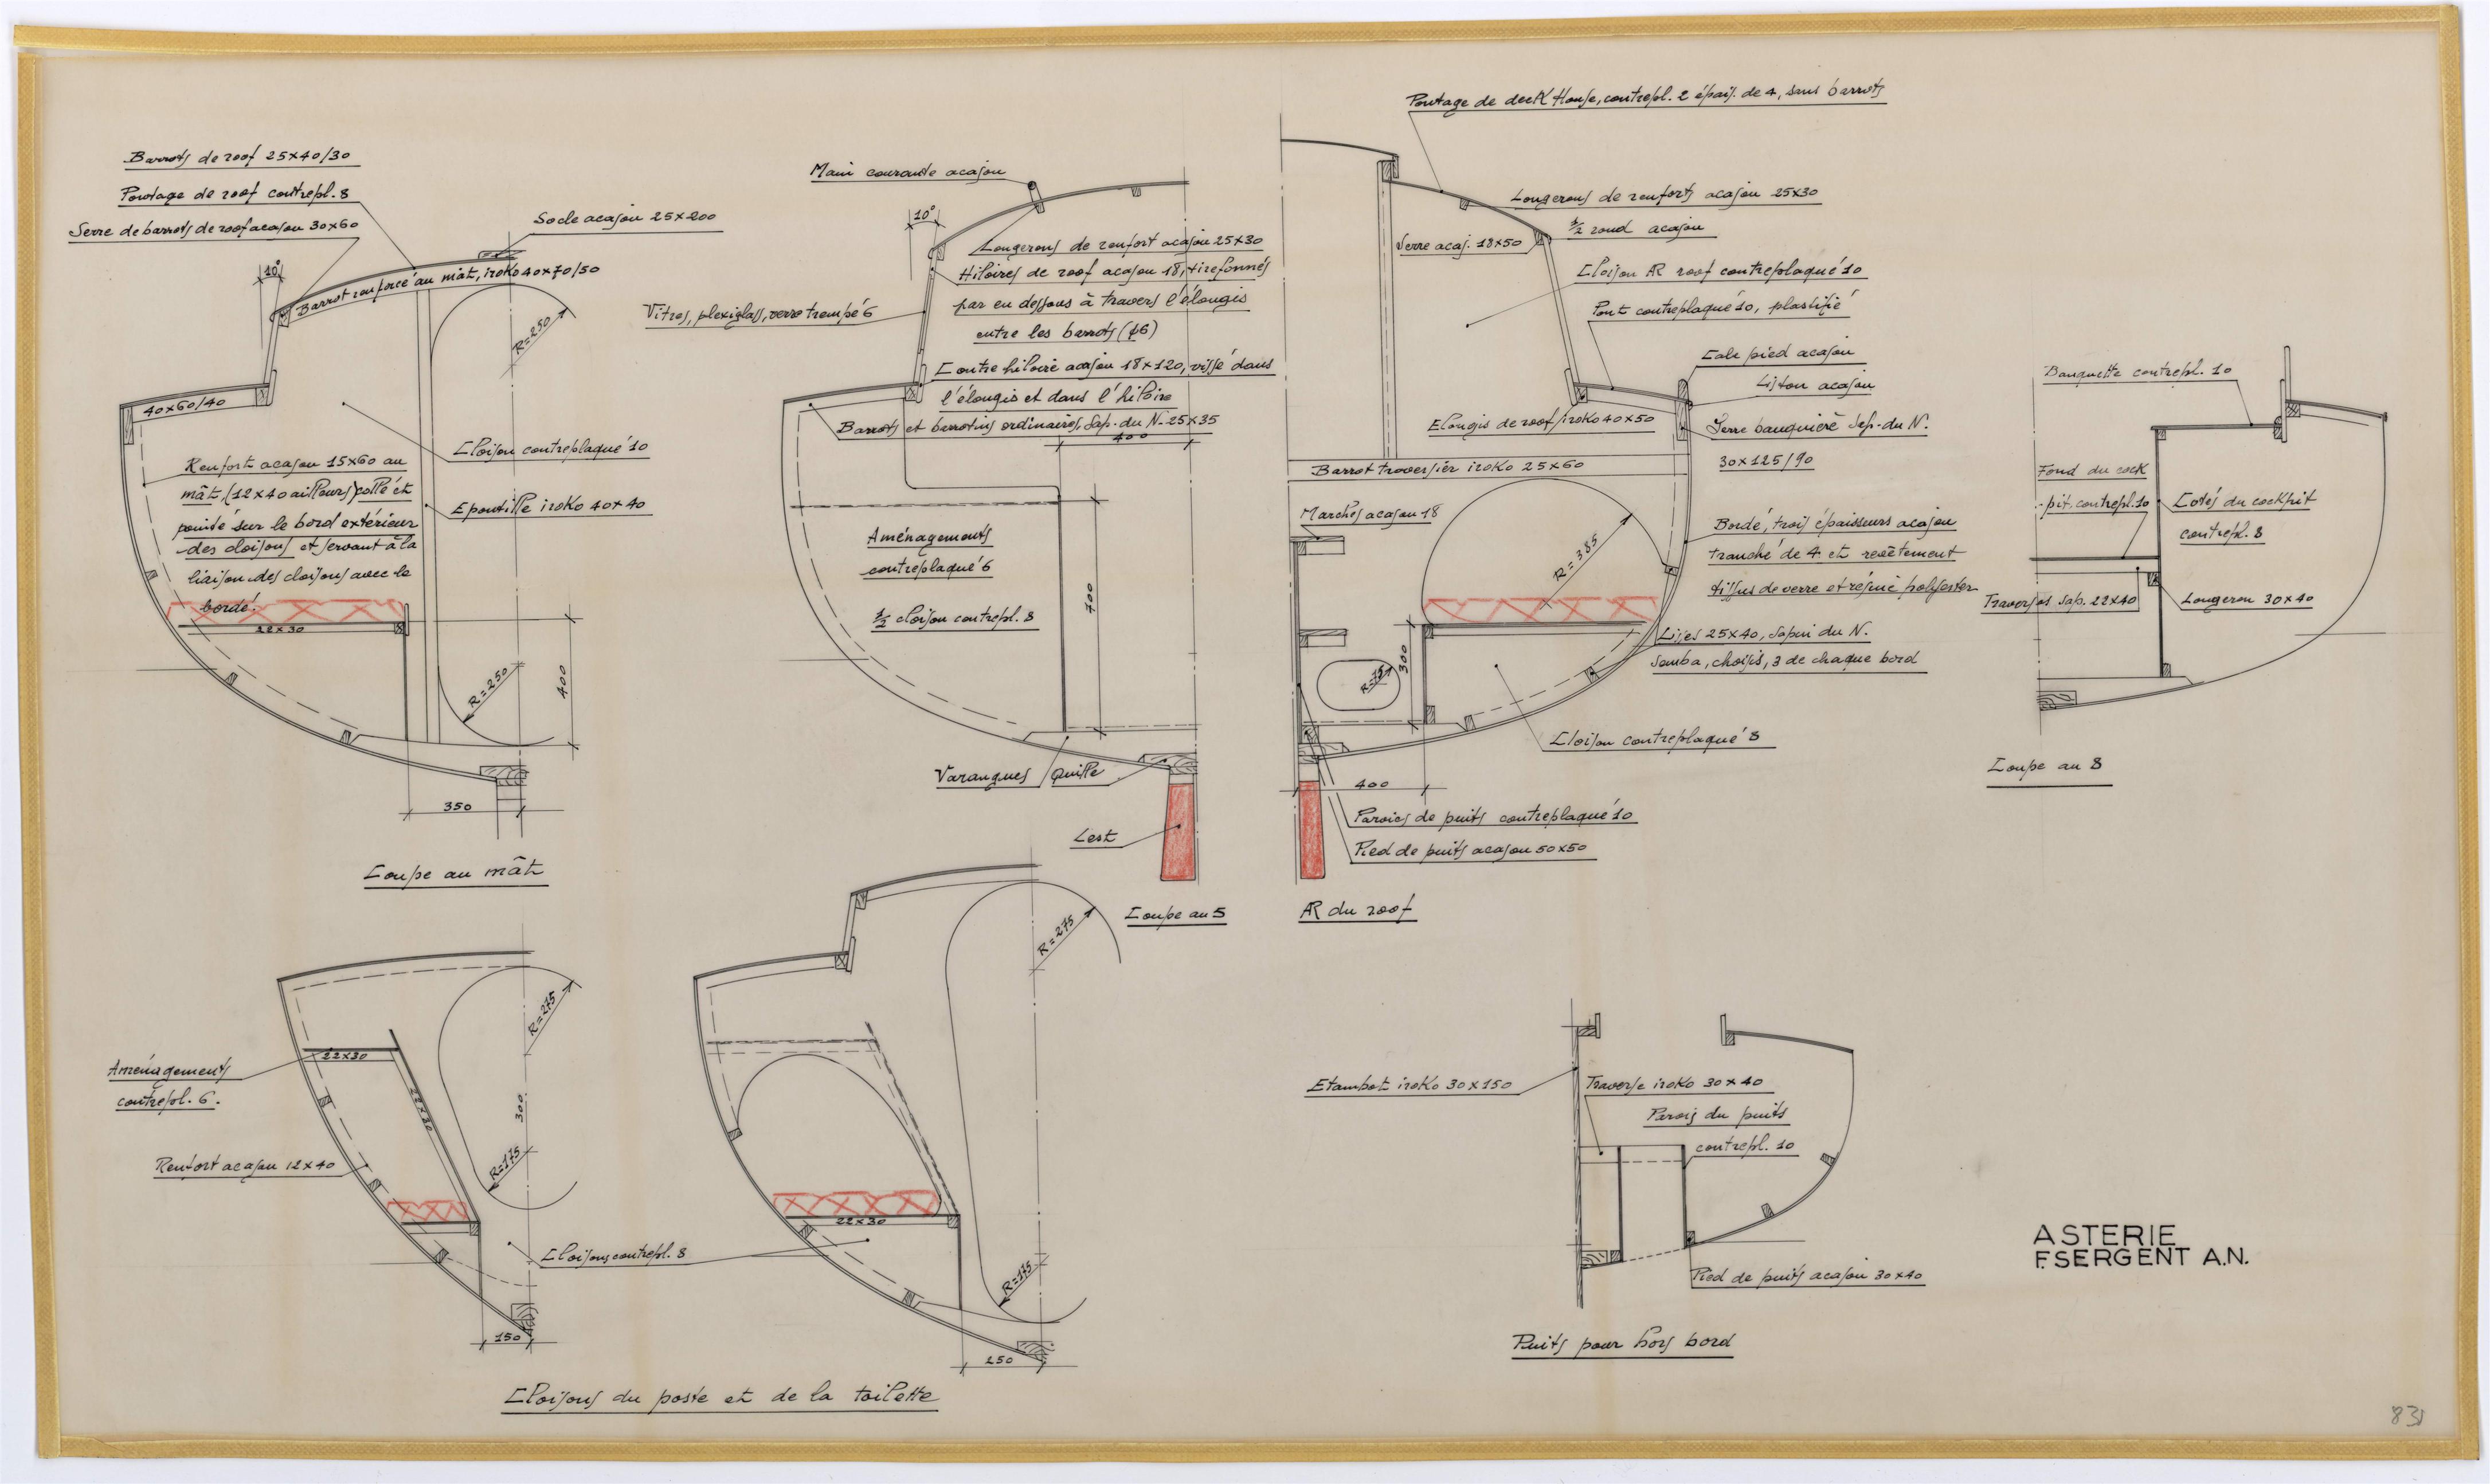 Barrots de roof 25x40/30
Pontage de roof contrepl. 8
Serre de barrots de roof acajou 30x60
10°
Socle acajou 25x200
Barrot renforcé au mât, iroko 40x70/50
R=250
40x60/40
Cloison contreplaqué 10
Renfort acajou 15x60 au
mât, (12x40 ailleurs) collé et
pointé sur le bord extérieur
des cloisons et servant à la
liaison des cloisons avec le
bordé.
Epontille iroko 40x40
22x30
R=250
400
350
Coupe au mât
Main courante acajou
10°
Longerons de renfort acajou 25x30
Hiloires de roof acajou 18, tirefonnés
par en dessous à travers l'élongis
entre les barrots (ϕ6)
Vitres, plexiglass, verre trempé 6
Contre hiloire acajou 18x120, vissé dans
l'élongis et dans l'hiloire
Barrots et barrotins ordinaires, Sap. du N. 25x35
400
Aménagements
contreplaqué 6
1/2 cloison contrepl. 8
700
Varangues
Quille
Lest
Coupe au 5
Pontage de deck House, contrepl. 2 épais. de 4, sans barrots
Longerons de renforts acajou 25x30
1/2 rond acajou
Serre acaj. 18x50
Cloison AR roof contreplaqué 10
Pont contreplaqué 10, plastifié
Cale pied acajou
Liston acajou
Elongis de roof iroko 40x50
Serre bauquière Sap. du N.
30x125/90
Barrot traversier iroko 25x60
Marches acajou 18
R=385
Bordé, trois épaisseurs acajou
tranché de 4 et revêtement
tissus de verre et résine polyester
Lisses 25x40, Sapin du N.
Samba, choisis, 3 de chaque bord
300
R=75
Cloison contreplaqué 8
400
Parois de puits contreplaqué 10
Pied de puits acajou 50x50
AR du roof
Banquette contrepl. 10
Fond du cock
-pit. contrepl. 10
Cotés du cockpit
contrepl. 8
Traverses Sap. 22x40
Longeron 30x40
Coupe au 8
R=275
22x30
22x30
Aménagements
contrepl. 6.
300
Renfort acajou 12x40
R=175
Cloisons contrepl. 8
150
R=275
22x30
R=175
250
Cloisons du poste et de la toilette
Etambot iroko 30x150
Traverse iroko 30x40
Parois du puits
contrepl. 10
Pied de puits acajou 30x40
Puits pour hors bord
ASTERIE
F.SERGENT A.N.